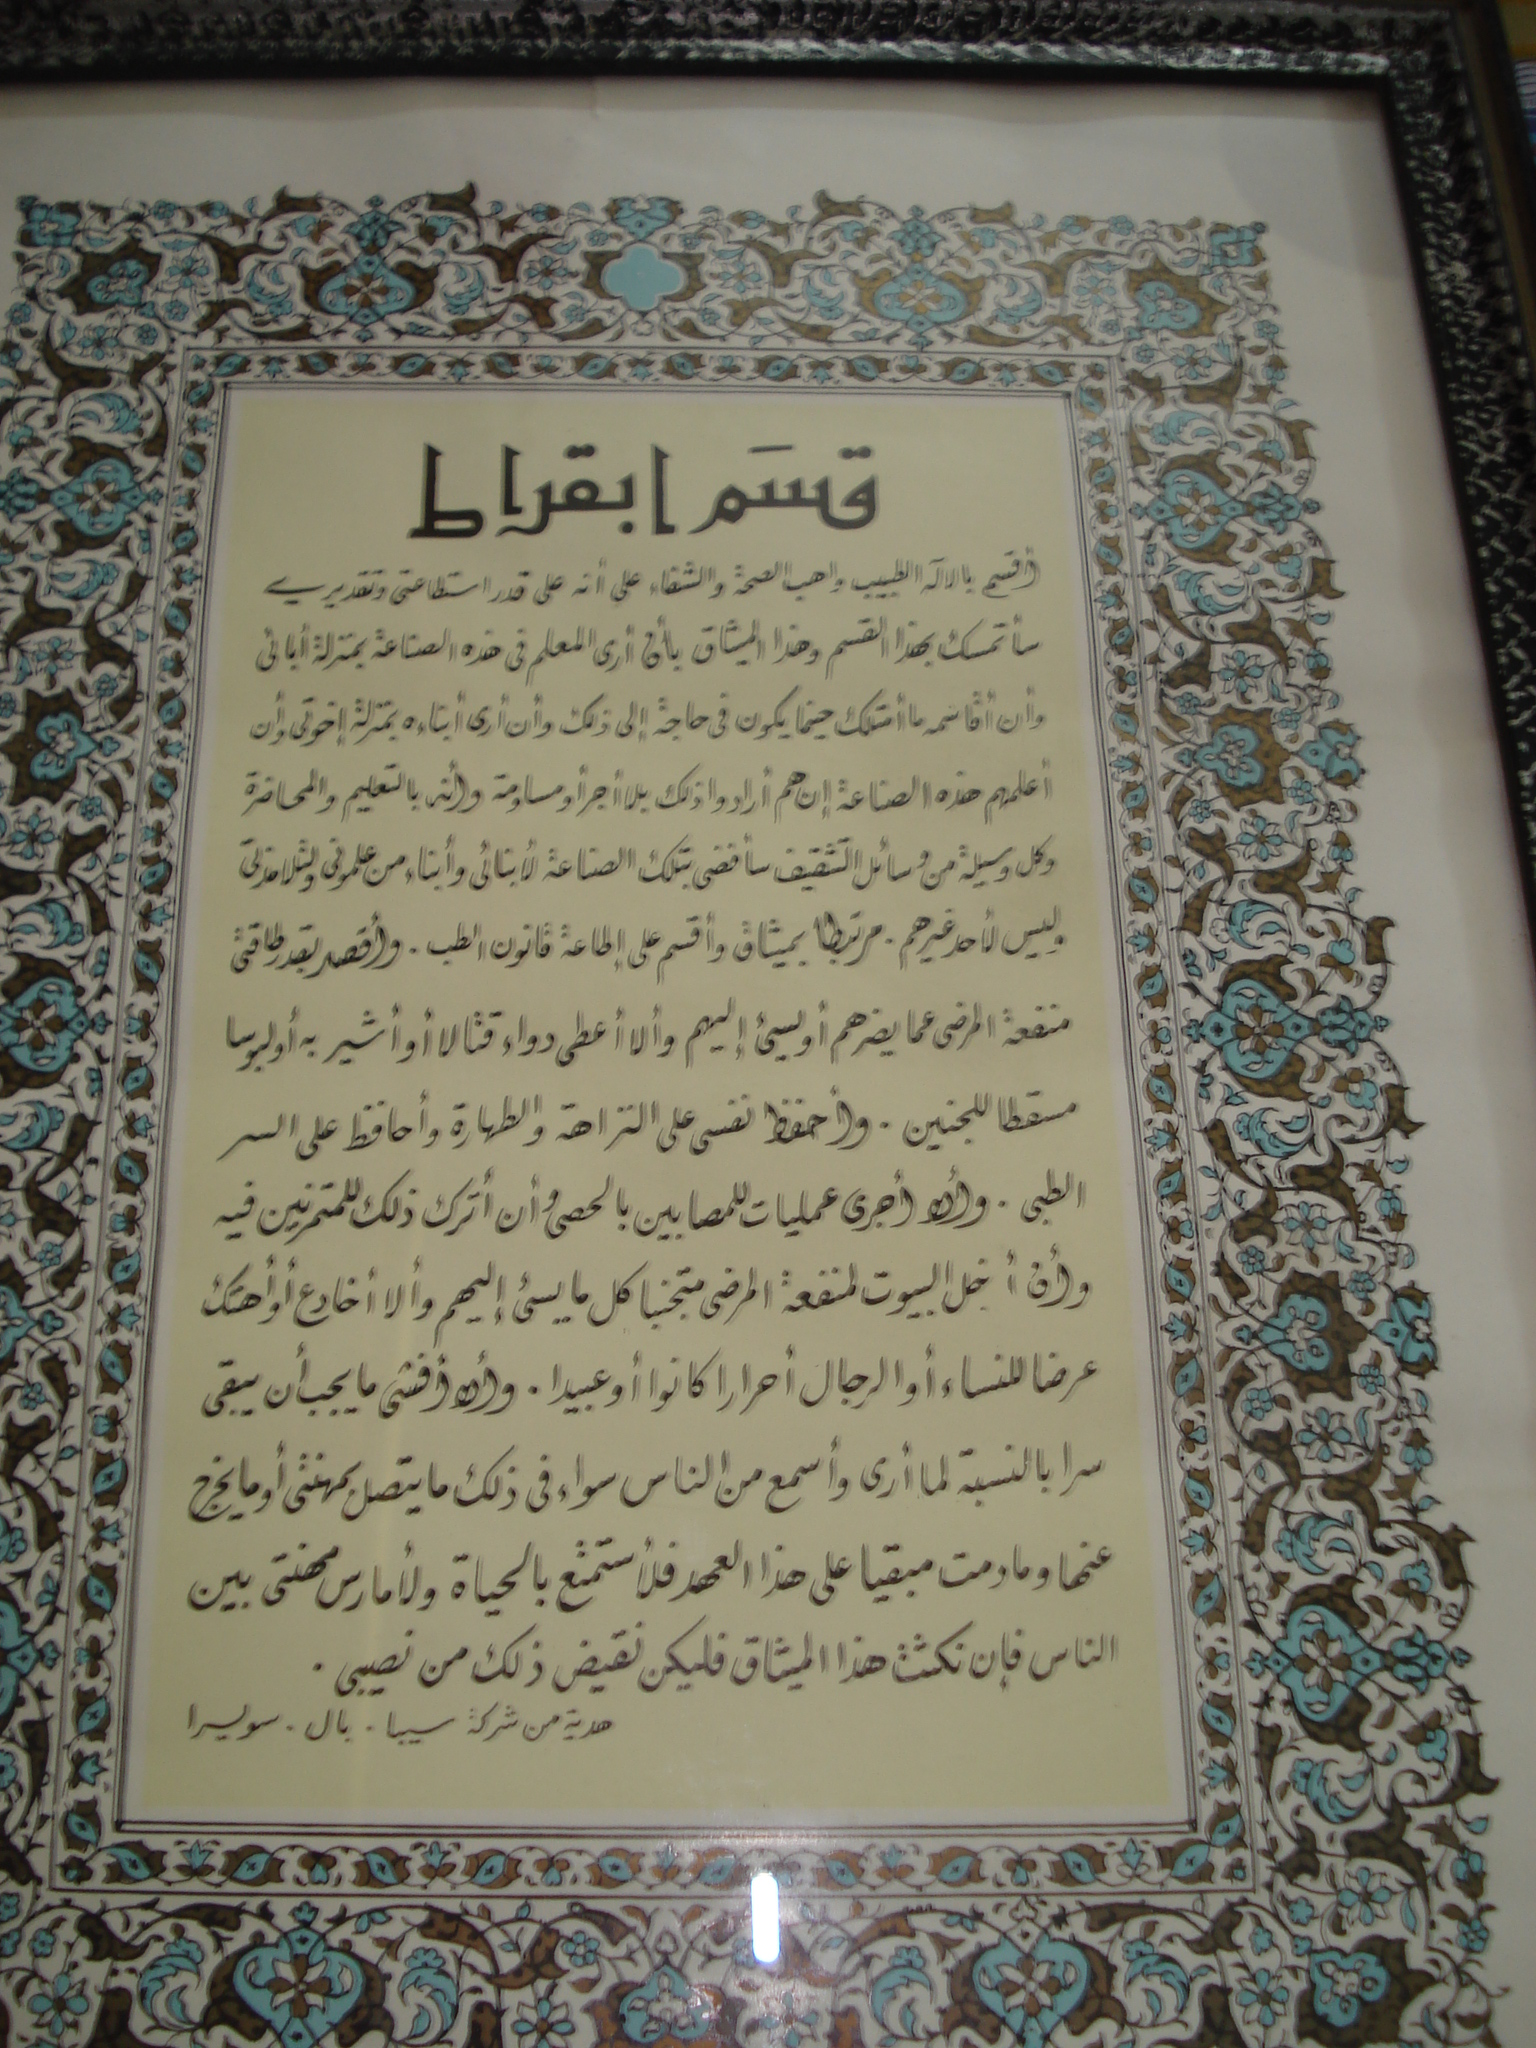 قسَم ابقراط
أقسم بالاله الطبيب واهب الصحة والشفاء على أنه على قدر استطاعتى وتقديرى
سأتمسك بهذا القسم وهذا الميثاق بأن أرى المعلم فى هذه الصناعة بمنزلة أبائى
وأن أقاسمه ما أمتلك حينما يكون فى حاجة إلى ذلك وأن أرى أبناءه بمنزلة إخوتى وأن
أعلمهم هذه الصناعة إن هم أرادوا ذلك بلا أجر أو مساومة وأنه بالتعليم والمحاضرة
وكل وسيلة من وسائل التثقيف سأفضى بتلك الصناعة لأبنائى وأبناء من علمونى ولتلامذتى
وليس لأحد غيرهم . مرتبطا بميثاق وأقسم على إطاعة قانون الطب . وأقصد بقدر طاقتى
منفعة المرضى عما يضرهم أو يسئ إليهم وألا أعطى دواء قتالا أو أشير به أو لبوسا
مسقطا للجنين . وأحفظ نفسى على النزاهة والطهارة وأحافظ على السر
الطبى . وألا أجرى عمليات للمصابين بالحصى وأن أترك ذلك للمتمرنين فيه
وأن أدخل البيوت لمنفعة المرضى متجنبا كل ما يسئ إليهم وألا أخادع أو أهتك
عرضا للنساء أو الرجال أحرارا كانوا أو عبيدا . وألا أفشى ما يجب أن يبقى
سرا بالنسبة لما أرى وأسمع من الناس سواء فى ذلك ما يتصل بمهنتى أو ما يخرج
عنها وما دمت مبقيا على هذا العهد فلأستمتع بالحياة ولأمارس مهنتى بين
الناس فإن نكثت هذا الميثاق فليكن نقيض ذلك من نصيبى .
هدية من شركة سيبا . بال . سويسرا